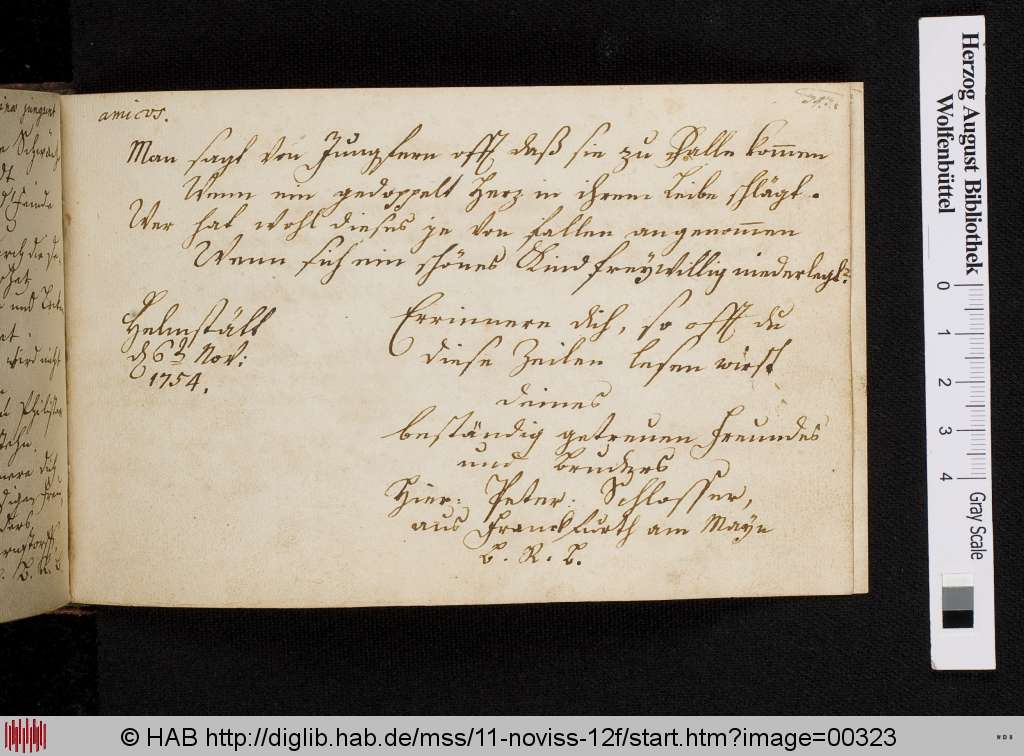 amicos.
Man sagt von Jungfern offt daß sie zu Falle kom̄en
Wenn ein gedoppelt Herz in ihrem Leibe schlägt.
Wer hat wohl dieses je von fallen angenom̄en
Wenn sich ein schönes Kind freywillig niederlegt?
Helmstält
d 6t Nov:
1754.
Errinnere dich, so offt du
diese Zeilen lesen wirst
deines
beständig getreuen Freundes
und Bruders
Hier: Peter. Schlosser,
aus Franckfurth am Mayn
B. R. B.
Herzog August Bibliothek
Wolfenbüttel
0
1
2
3
4
Gray Scale
© HAB http://diglib.hab.de/mss/11-noviss-12f/start.htm?image=00323